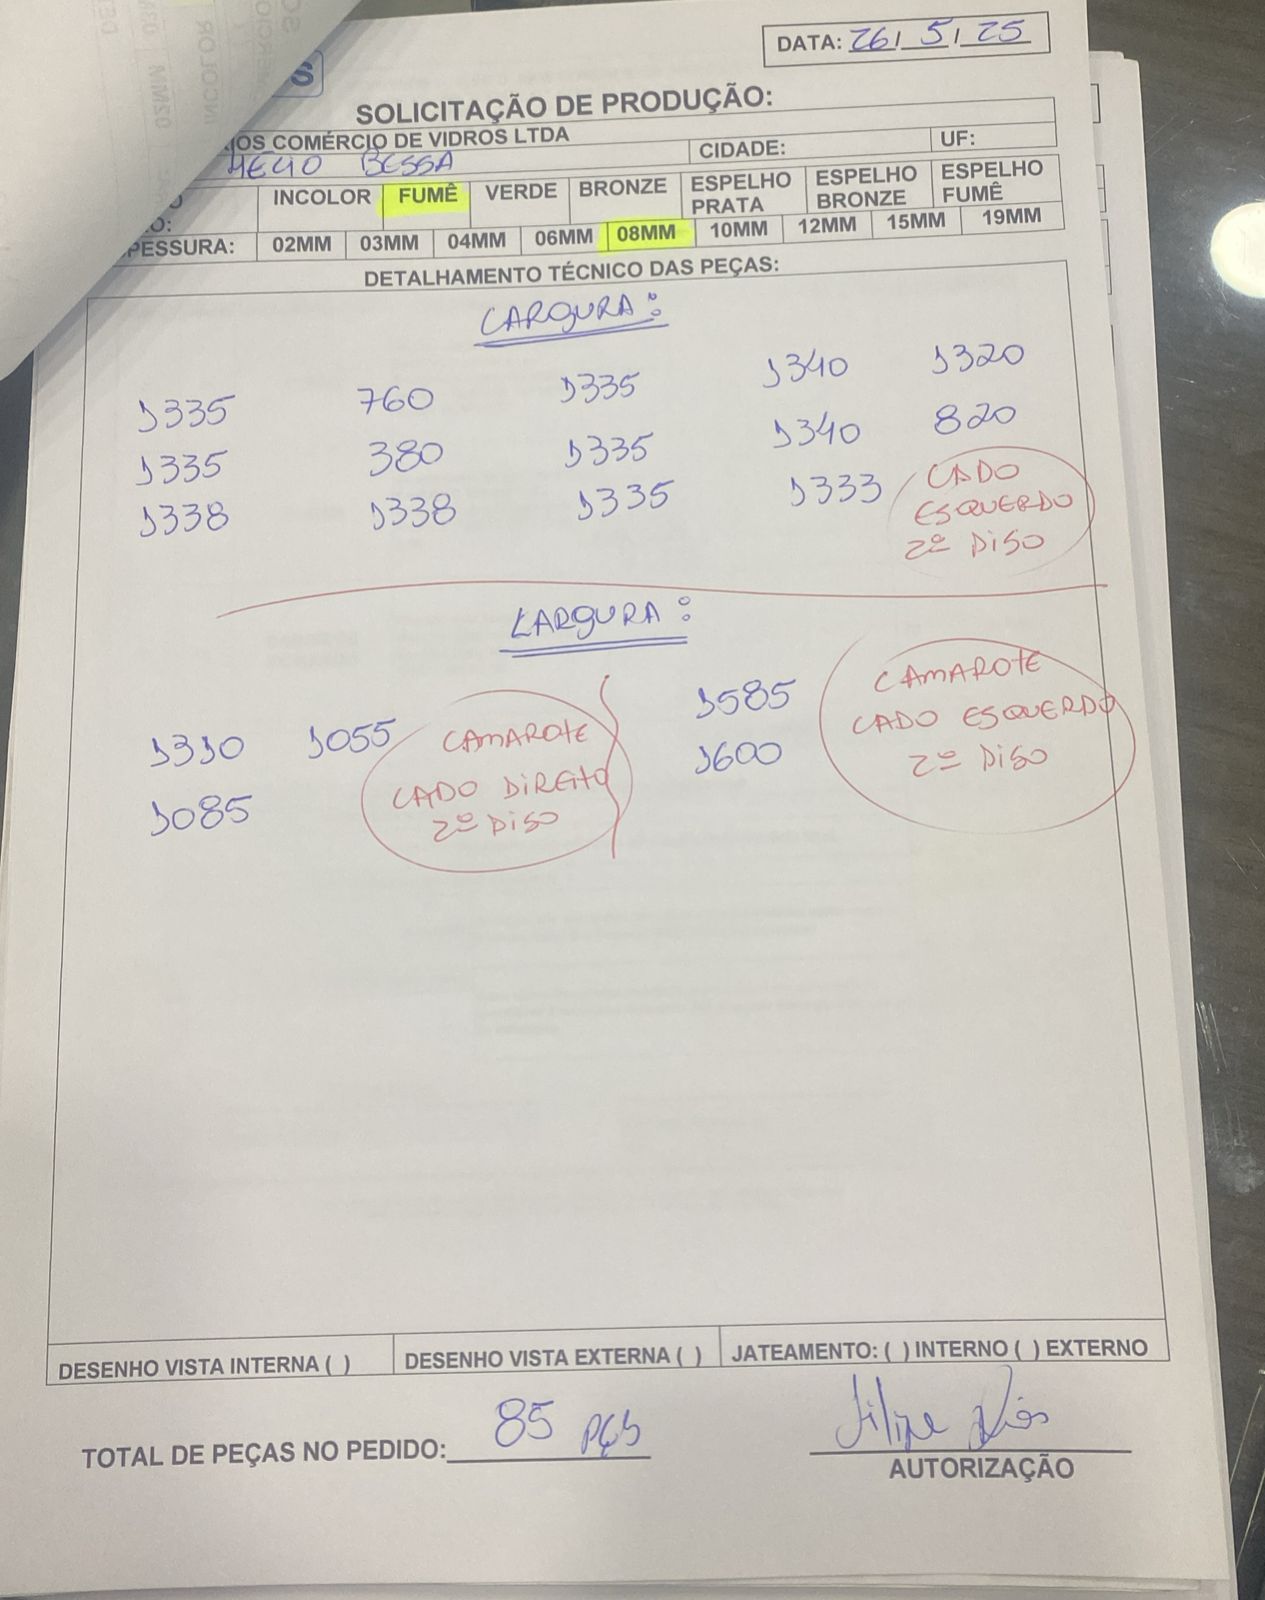 DATA: 26/5/25
SOLICITAÇÃO DE PRODUÇÃO:
COMÉRCIO DE VIDROS LTDA
HELIO BESSA CIDADE: UF:
INCOLOR FUMÊ VERDE BRONZE ESPELHO PRATA ESPELHO BRONZE ESPELHO FUMÊ
PESSURA: 02MM 03MM 04MM 06MM 08MM 10MM 12MM 15MM 19MM
DETALHAMENTO TÉCNICO DAS PEÇAS:
LARGURA:
1335 760 1335 1340 1320
1335 380 1335 1340 820
1338 1338 1335 1333
LADO
ESQUERDO
2º PISO
LARGURA:
1310 1055
1085
CAMAROTE
LADO DIREITO
2º PISO
1585
1600
CAMAROTE
LADO ESQUERDO
2º PISO
DESENHO VISTA INTERNA ( ) DESENHO VISTA EXTERNA ( ) JATEAMENTO: ( ) INTERNO ( ) EXTERNO
TOTAL DE PEÇAS NO PEDIDO: 85 PÇS
Filipe Rios
AUTORIZAÇÃO